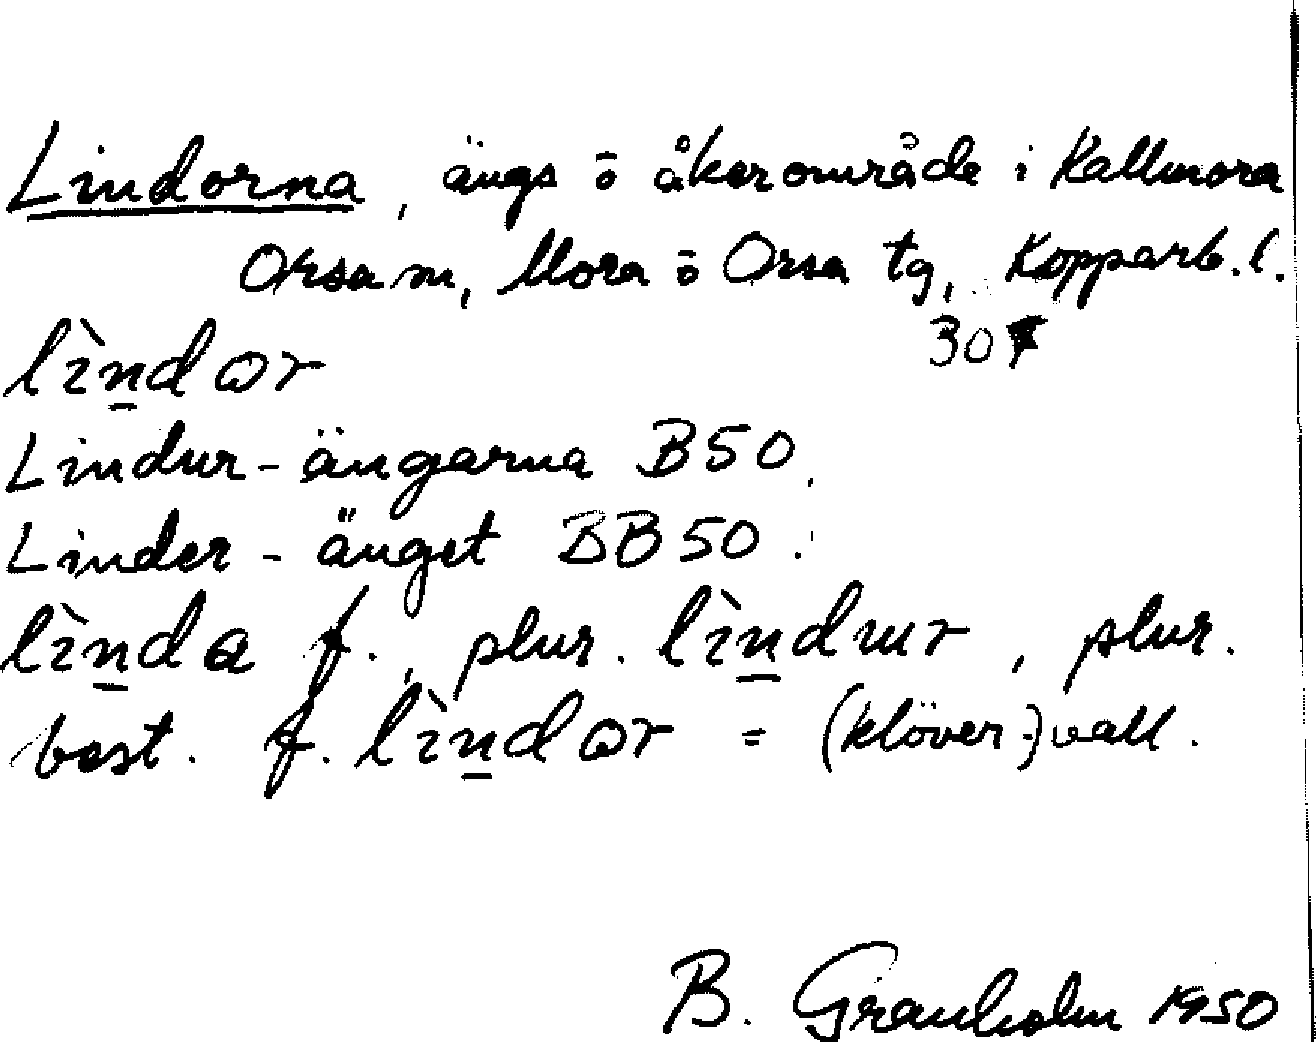 Lindorna, ängs ō åkerområde i Kallmora
Orsa sn, Mora ō Orsa tg, Kopparb. l.
30
lìn̲dɷr
Lindur-ängarna B50.
Linder-änget BB50.
lìn̲da f., plur. lìn̲dɯr, plur.
best. f. lìn̲dɷr = (klöver-)vall.
B. Granholm 1950